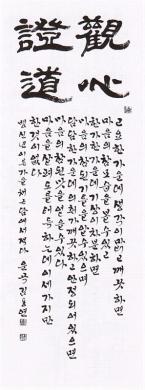 觀心
證道
고요한 가운데 생각이 맑고 깨끗하면
마음의 참 모습을 볼 수 있고
한가한 가운데 기상이 차분하면
마음의 참된 기틀을 알 수 있으며
담담한 가운데 의취가 깨끗하고 안정되어 있으면
마음의 참된 맛을 얻을 수 있다
마음을 살펴 도를 터득하는데 이 세가지만
한 것이 없다